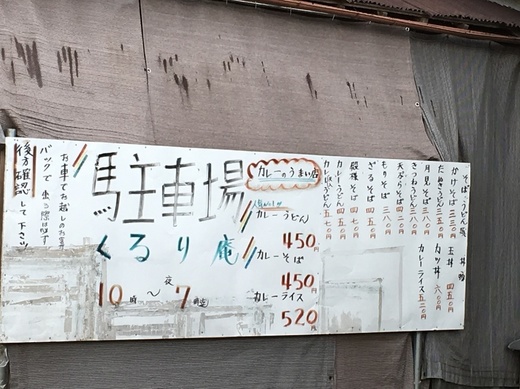 そば・うどん類
丼物
かけそば 三三〇円
玉丼 四五〇円
たぬきうどん 三五〇円
カツ丼 六〇〇円
月見そば 三八〇円
カレーライス 五二〇円
きつねうどん 三八〇円
天ぷらそば 四二〇円
もりそば 三八〇円
ざるそば 四五〇円
カレーうどん 四五〇円
カレーのうまい店
駐車場
くるり庵
10時〜夜7時迄
人気No.1!!
カレーうどん
450円
カレーそば
450円
カレーライス
520円
お車でお越しのお客
バックで出る際は必ず
後方確認して下さい